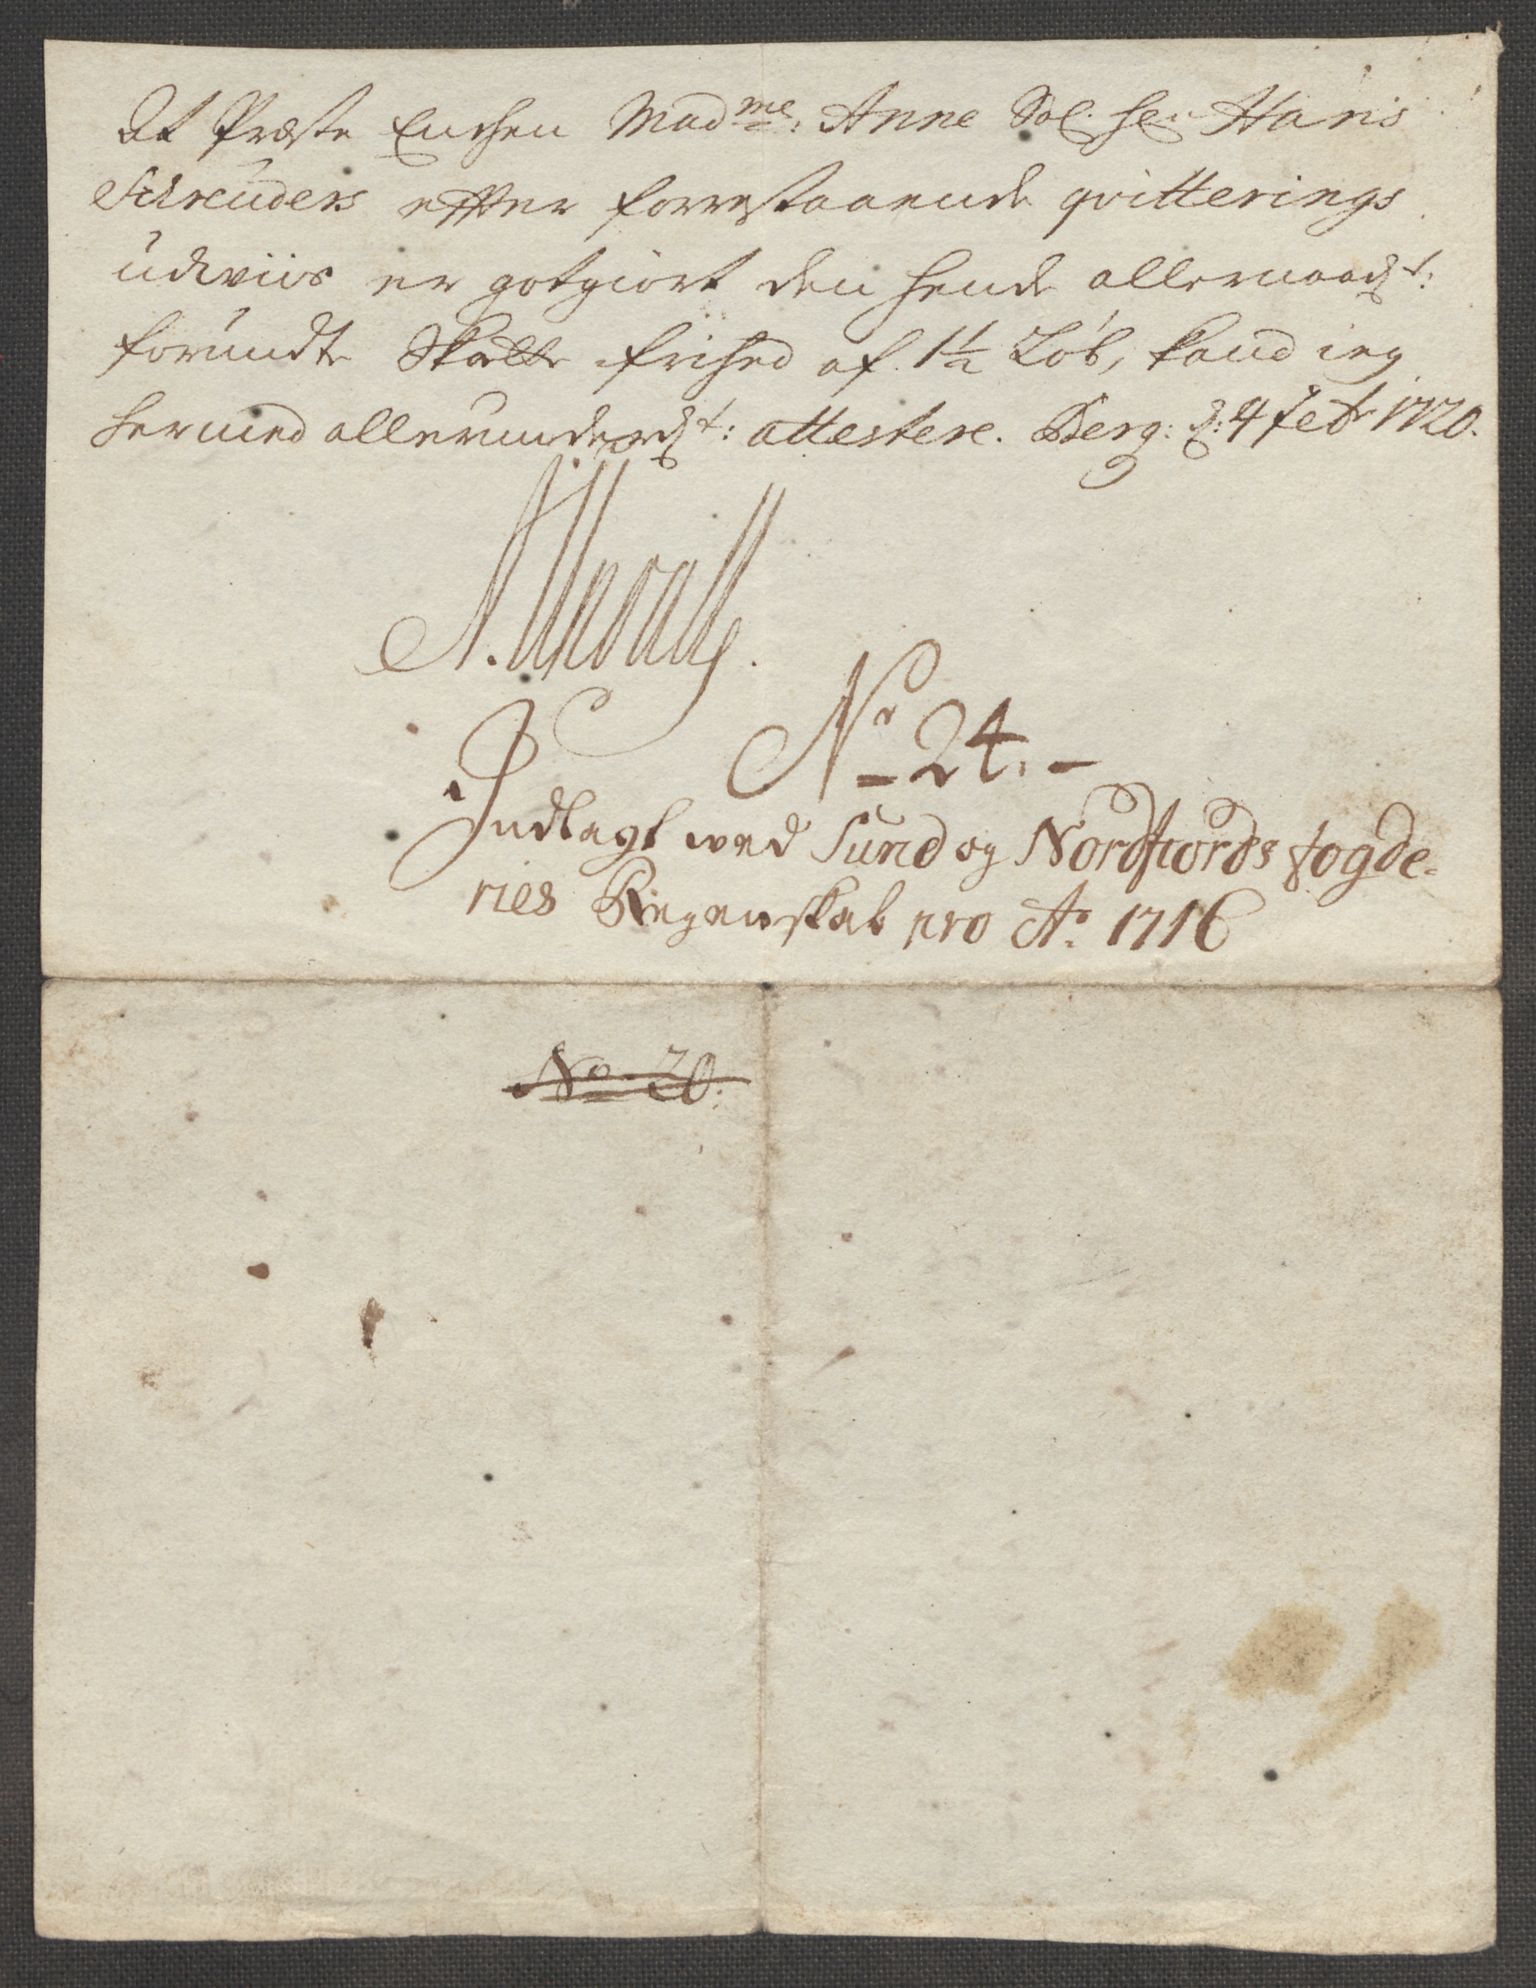 At Præste Enchen Mad<sup>me</sup>: Anne Sal. her Hans
Schreuders effter forrestaaende qvitterings
udviis er gotgiort den hende allernaadst:
forundte Skatte frihed af 1½ Løb, kand ieg
hermed allerunderdst: attestere. Berg: d: 4 Feb 1720.
N<sup>o</sup> 24.
Indlagt wed Sund og Nordfiords fogde-
ries Regenskab pro A<sup>o</sup> 1716
No 20.